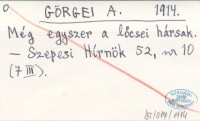 GÖRGEI A. 1914.
Még egyszer a lőcsei hársak.
— Szepesi Hírnök 52, nr 10
(7 III).